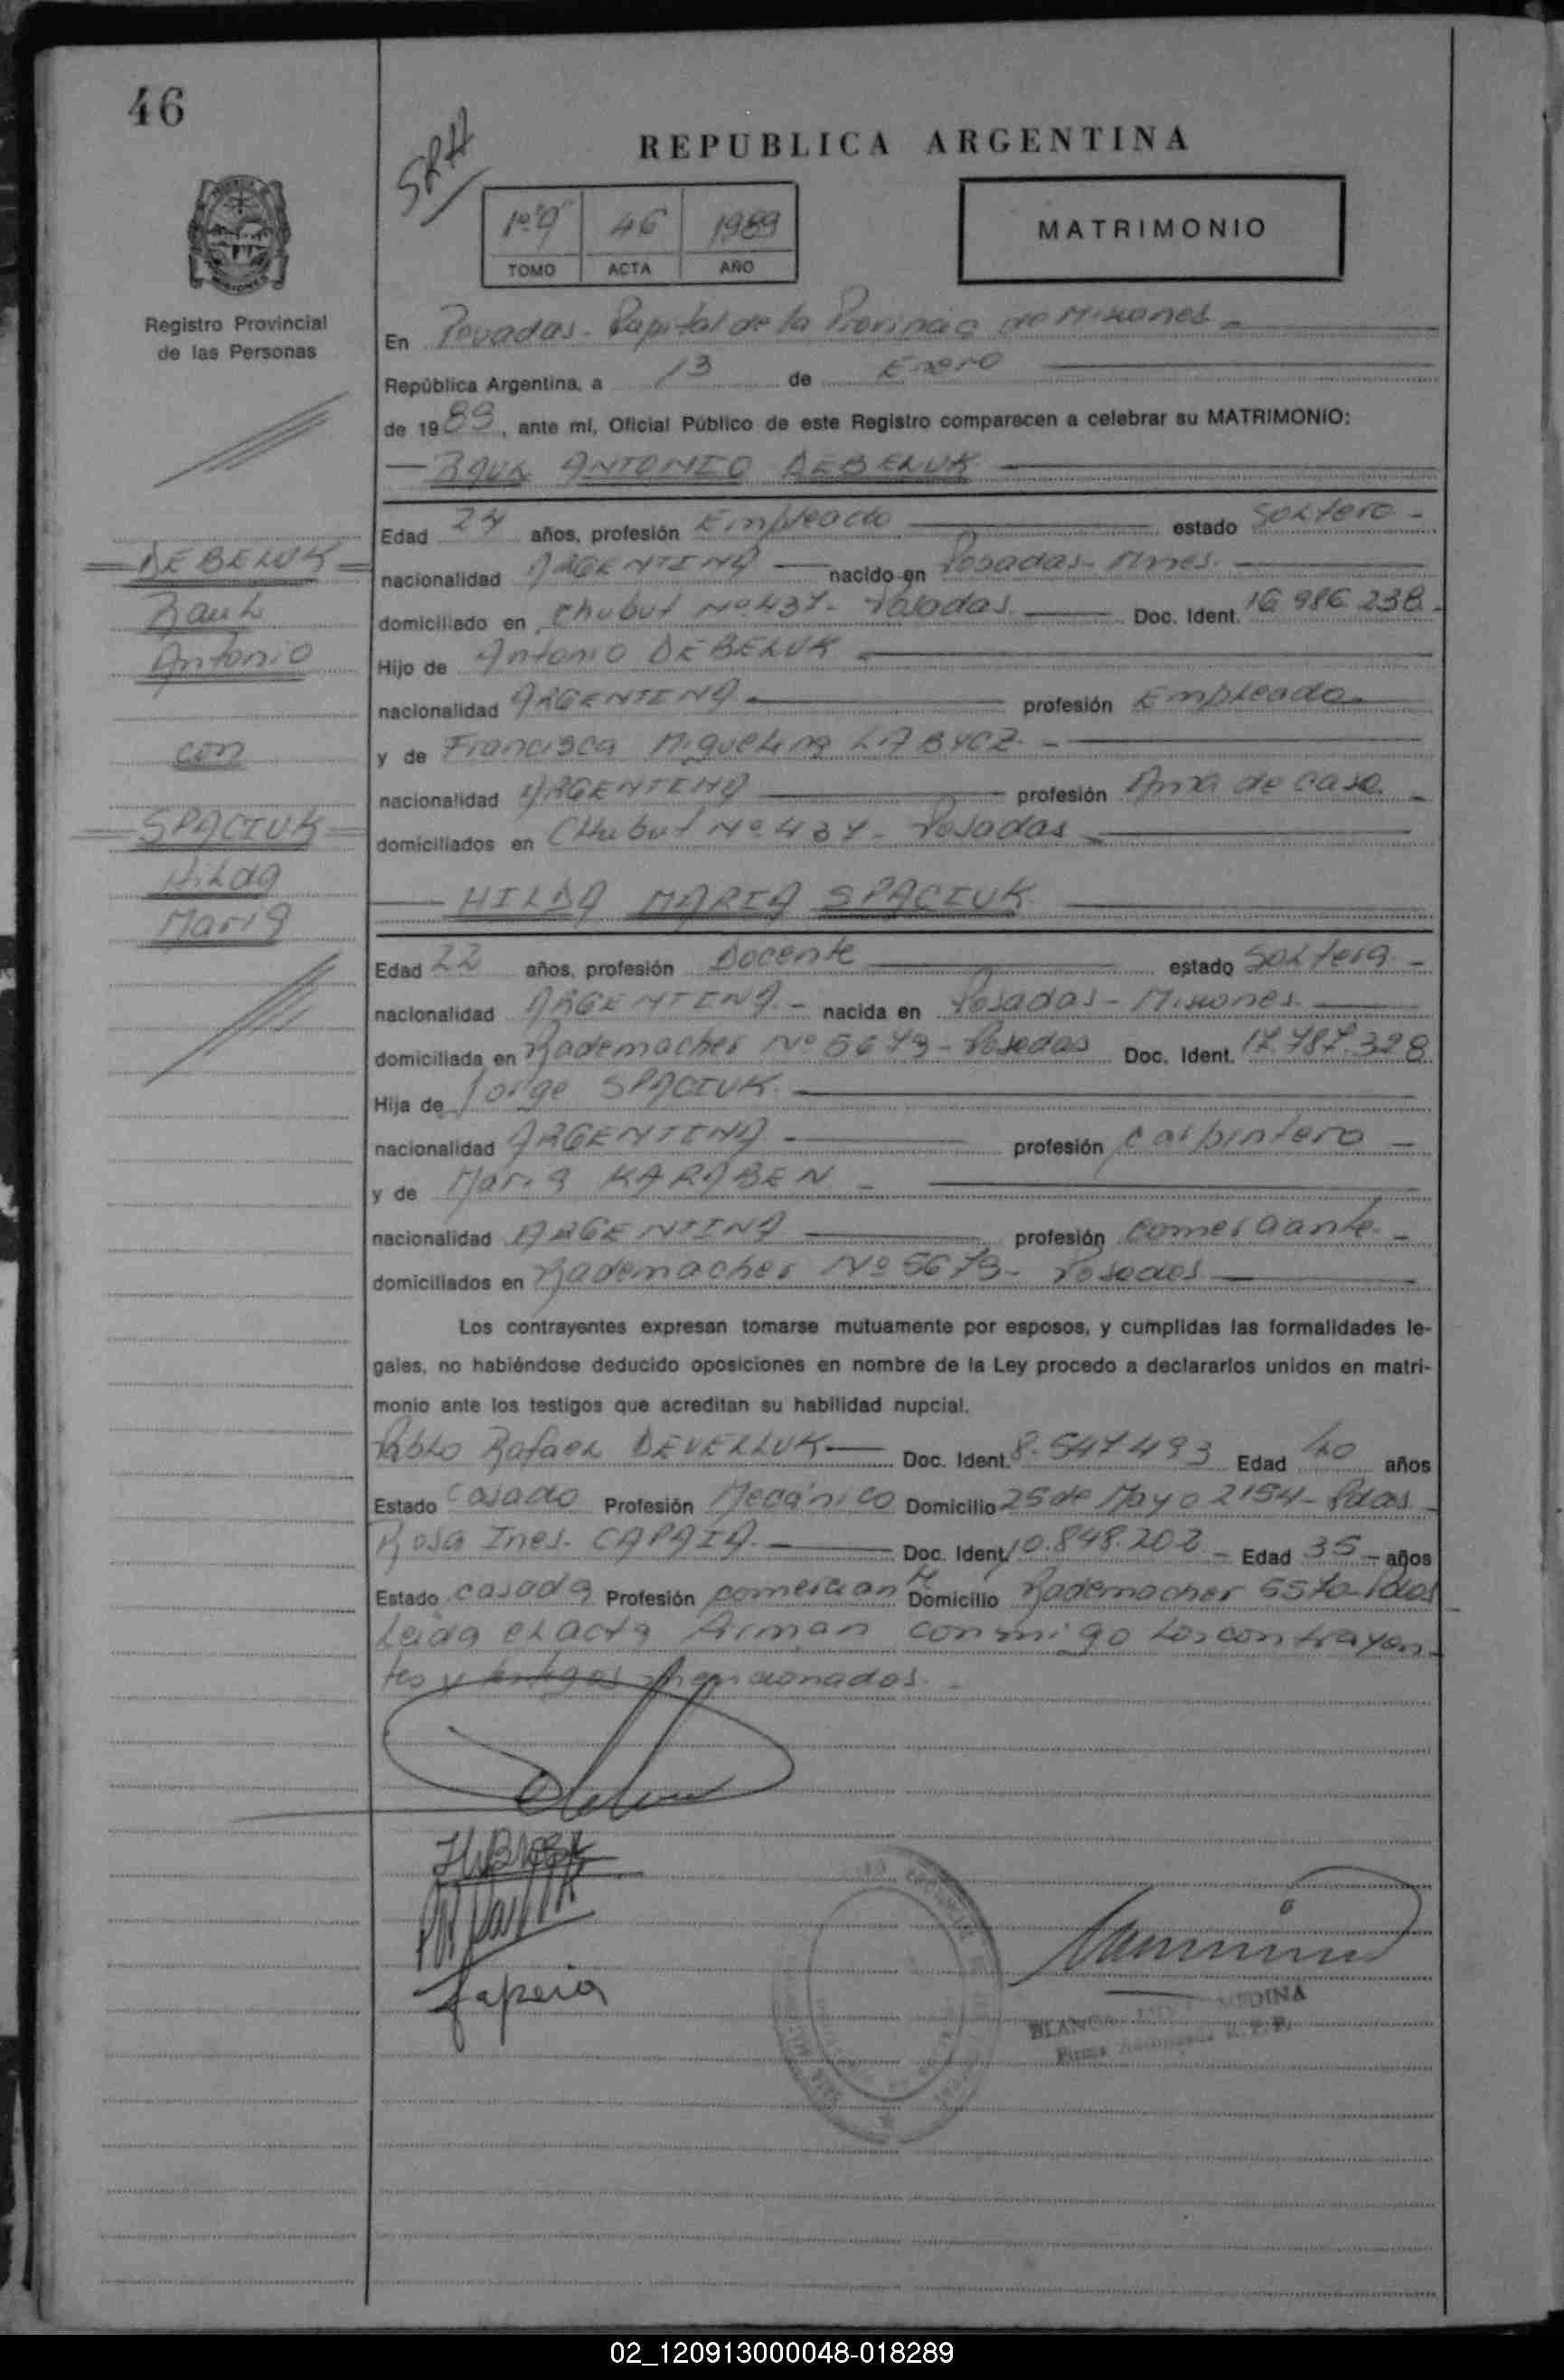 46
SRH
REPUBLICA ARGENTINA
1º 9 46 1989
TOMO ACTA AÑO
MATRIMONIO
Registro Provincial
de las Personas
En Posadas - Capital de la Provincia de Misiones -
República Argentina, a 13 de Enero
de 1989, ante mí, Oficial Público de este Registro comparecen a celebrar su MATRIMONIO:
— RAUL ANTONIO DEBELUK
Edad 24 años, profesión Empleado estado Soltero -
nacionalidad ARGENTINA — nacido en Posadas - Mnes.
domiciliado en Chubut Nº 437 - Posadas. Doc. Ident. 16.986.238 -
Hijo de Antonio DEBELUK
nacionalidad ARGENTINA - profesión Empleado.
y de Francisca Miguelina LABYCZ. -
nacionalidad ARGENTINA profesión Ama de casa. -
domiciliados en CHubut Nº 437 - Posadas
DEBELUK
Raul
Antonio
con
SPACIUK
Hilda
Maria
— HILDA MARIA SPACIUK
Edad 22 años, profesión Docente estado Soltera. -
nacionalidad ARGENTINA. - nacida en Posadas - Misiones.
domiciliada en Rademacher Nº 5673 - Posadas Doc. Ident. 17.787.328
Hija de Jorge SPACIUK.
nacionalidad ARGENTINA - profesión Carpintero -
y de Maria KARABEN -
nacionalidad ARGENTINA profesión comerciante. -
domiciliados en Rademacher Nº 5673 - Posadas
Los contrayentes expresan tomarse mutuamente por esposos, y cumplidas las formalidades le-
gales, no habiéndose deducido oposiciones en nombre de la Ley procedo a declararlos unidos en matri-
monio ante los testigos que acreditan su habilidad nupcial.
Pablo Rafael DEVELLUK — Doc. Ident. 8.547.493 Edad 40 años
Estado Casado Profesión Mecánico Domicilio 25 de Mayo 2154 - Pdas -
Rosa Ines. CAPAIA. — Doc. Ident. 10.848.202 - Edad 35 - años
Estado casada Profesión comerciante Domicilio Rademacher 5570 - Pdas
Leida el acta firman conmigo los contrayen-
tes y testigos mencionados. -
Capaia
BLANCA MEDINA
Firma
02_120913000048-018289